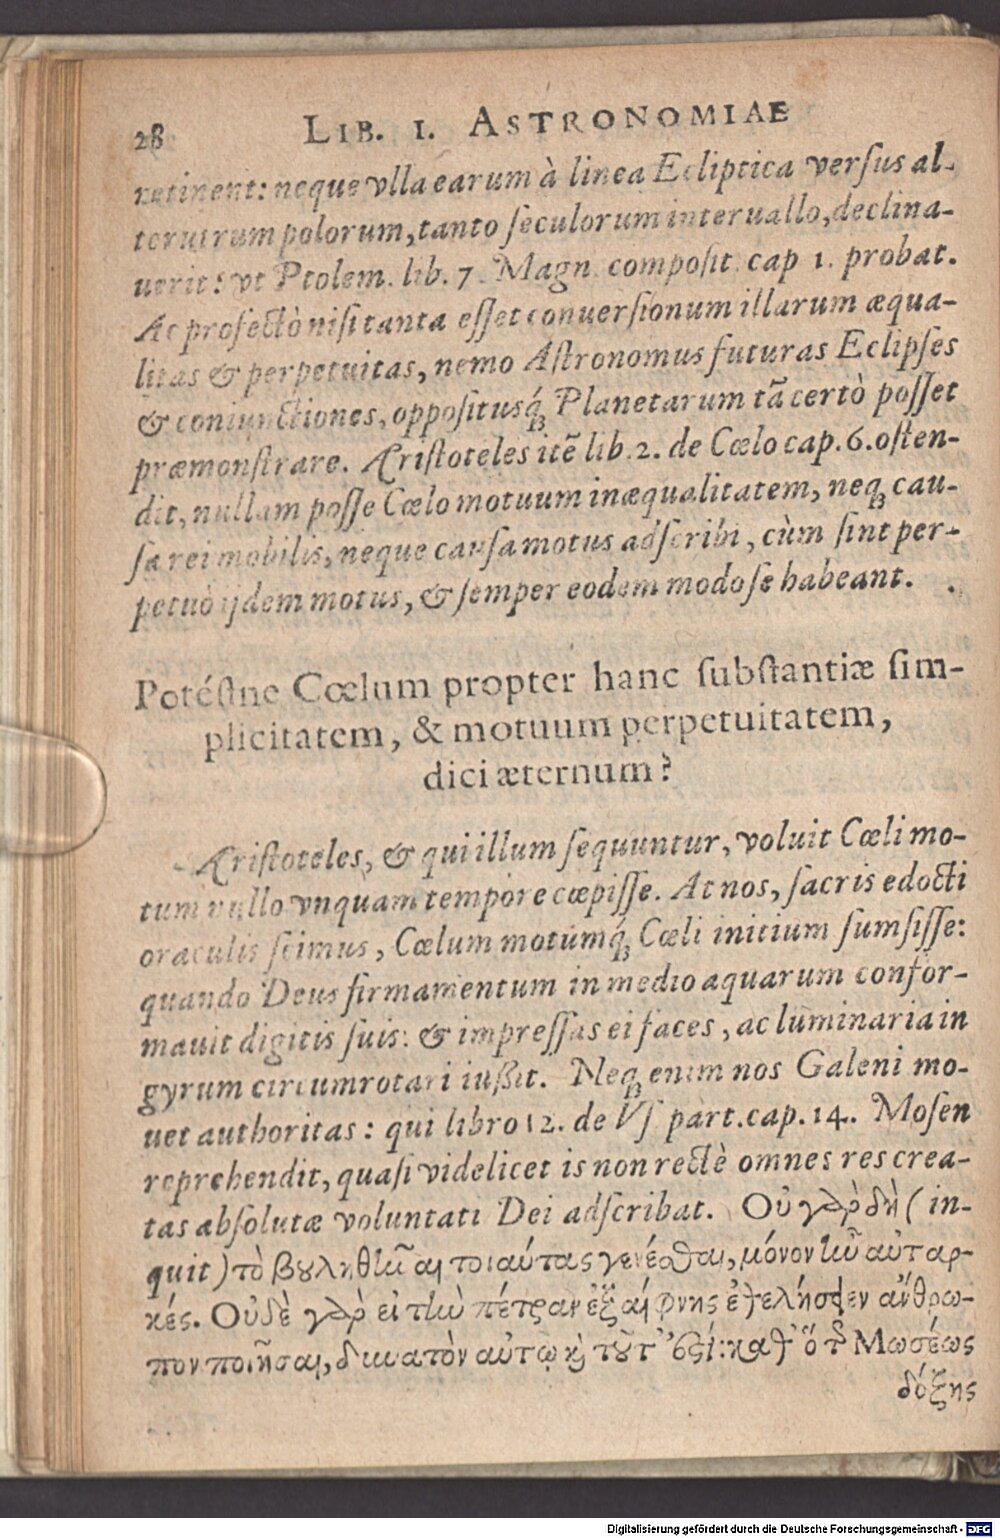 28 LIB. I. ASTRONOMIAE
retinent: neque vlla earum à linea Ecliptica versus al-
terutrum polorum, tanto seculorum interuallo, declina-
uerit: vt Ptolem. lib. 7. Magn. composit. cap 1. probat.
Ac profectò nisi tanta esset conuersionum illarum æqua-
litas & perpetuitas, nemo Astronomus futuras Eclipses
& coniunctiones, oppositusq́; Planetarum tā certò posset
præmonstrare. Aristoteles itē lib. 2. de Cœlo cap. 6. osten-
dit, nullam posse Cœlo motuum inæqualitatem, neq; cau-
sa rei mobilis, neque causa motus adscribi, cùm sint per-
petuò ijdem motus, & semper eodem modo se habeant.
Potéstne Cœlum propter hanc substantiæ sim-
plicitatem, & motuum perpetuitatem,
dici æternum?
Aristoteles, & qui illum sequuntur, voluit Cœli mo-
tum nullo vnquam tempore cœpisse. At nos, sacris edocti
oraculis scimus, Cœlum motúmq́; Cœli initium sumsisse:
quando Deus firmamentum in medio aquarum confor-
mauit digitis suis: & impressas ei faces, ac luminaria in
gyrum circumrotari iußit. Neq; enim nos Galeni mo-
uet authoritas: qui libro 12. de Vs part. cap. 14. Mosen
reprehendit, quasi videlicet is non rectè omnes res crea-
tas absolutæ voluntati Dei adscribat. Οὐ γὰρ δὴ (in-
quit) τὸ βουληθῆναι τοιαύτας γενέσθαι, μόνον ἦν αὐταρ-
κές. Οὐδὲ γὰρ εἰ τὴν πέτραν ἐξαίφνης ἐθελήσειεν ἄνθρω-
πον ποιῆσαι, δυνατὸν αὐτῷ καὶ τοῦτ' ἐστί: καθ' ὃ τῆς Μωσέως
δόξης